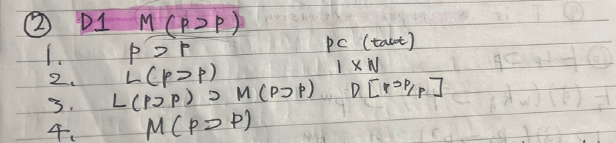 ② D1 M(p⊃p)
1. p⊃p PC (taut)
2. L(p⊃p) 1×N
3. L(p⊃p) ⊃ M(p⊃p) D[p⊃p/p]
4. M(p⊃p)